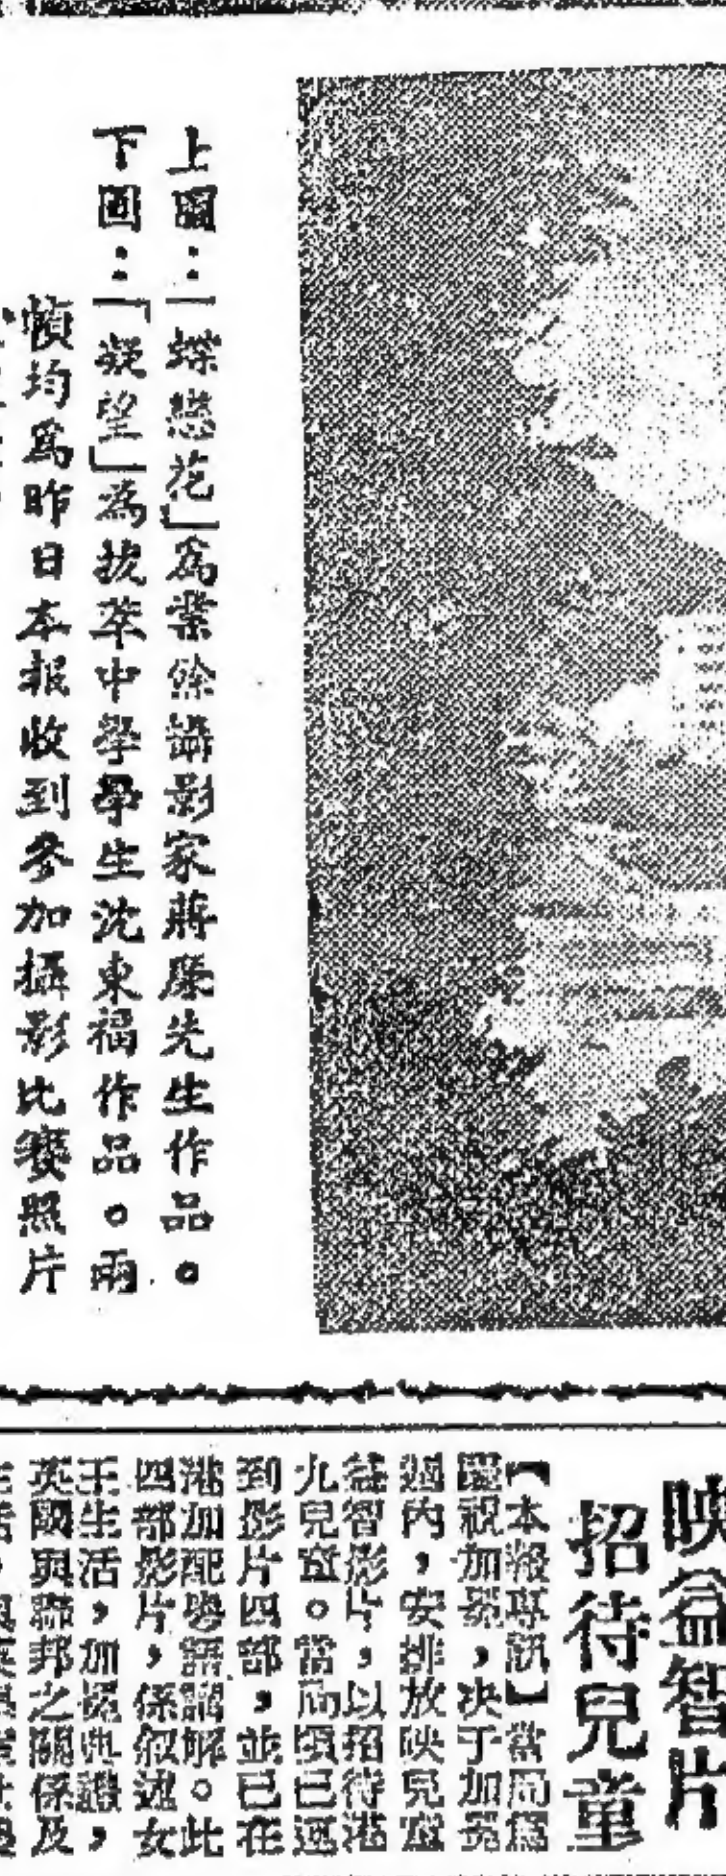 上圖：「蝶戀花」爲業餘攝影家蔣廉先生作品。
下圖：「凝望」爲拔萃中學學生沈東福作品。兩
幀均爲昨日本報收到參加攝影比賽照片
映益智片
招待兒童
【本報專訊】當局爲
慶祝加冕，决于加冕
週內，安排放映兒童
益智影片，以招待港
九兒童。當局頃已運
到影片四部，並已在
港加配粵語講解。此
四部影片，係叙述女
王生活，加冕典禮，
英國與聯邦之關係及